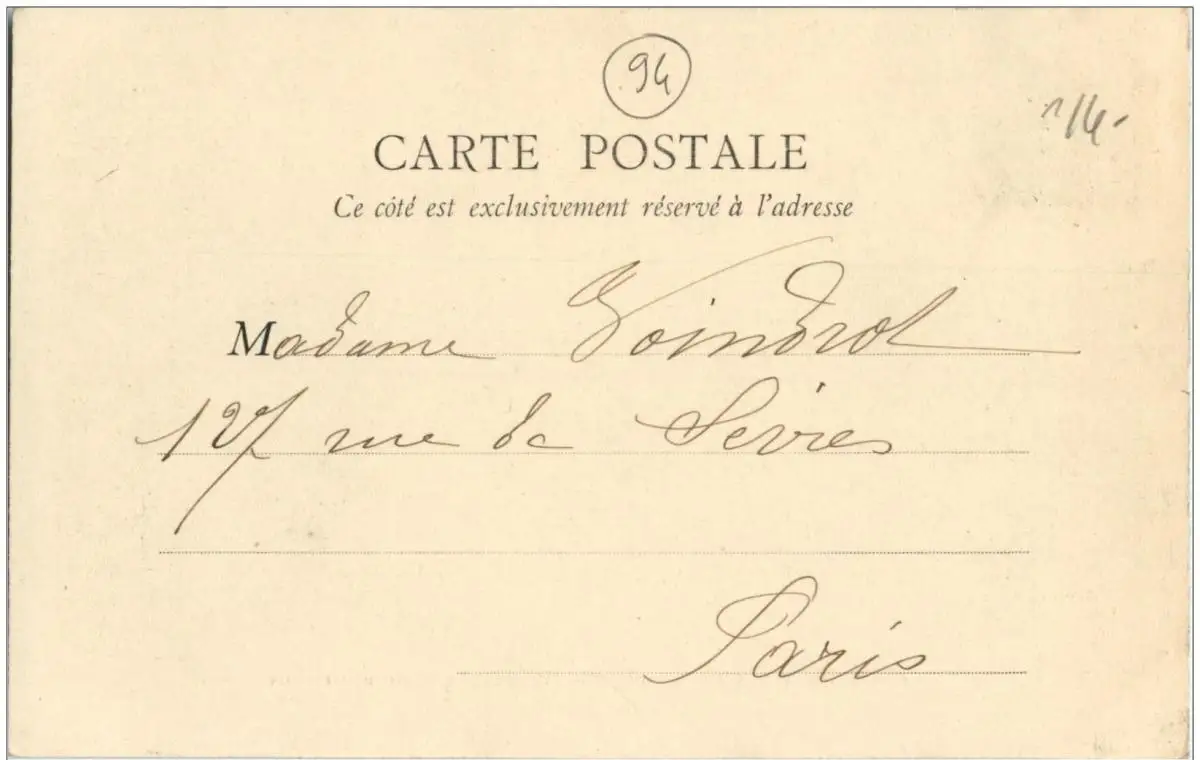 94
CARTE POSTALE
Ce côté est exclusivement réservé à l'adresse
Madame Voindrot
127 rue de Sèvres
Paris